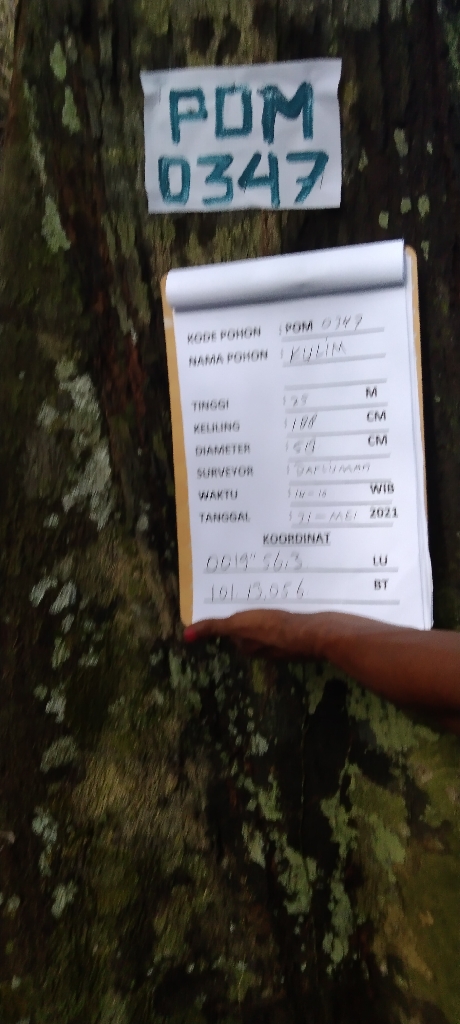 PDM
0347
KODE POHON : PDM 0347
NAMA POHON : KULIM
TINGGI : 28 M
KELILING : 188 CM
DIAMETER : 59 CM
SURVEYOR :
WAKTU : 14-18 WIB
TANGGAL : 31 - MEI 2021
KOORDINAT
0019" 56.3 LU
101.15.056 BT